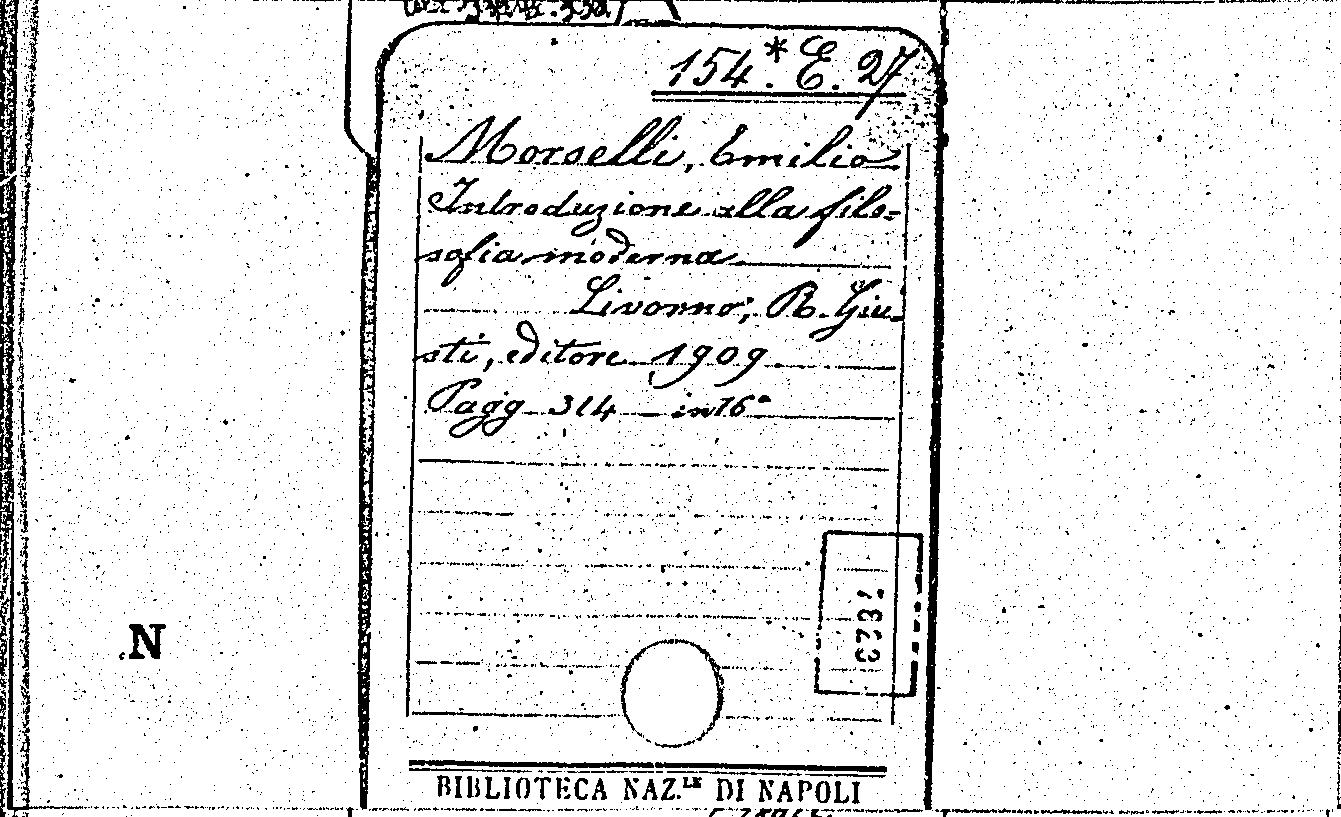 154.* E. 27
Morselli, Emilio
Introduzione alla filo=
sofia moderna
Livorno, R. Giu=
sti, editore 1909
Pagg 314 – in 16°
N
BIBLIOTECA NAZ.LE DI NAPOLI